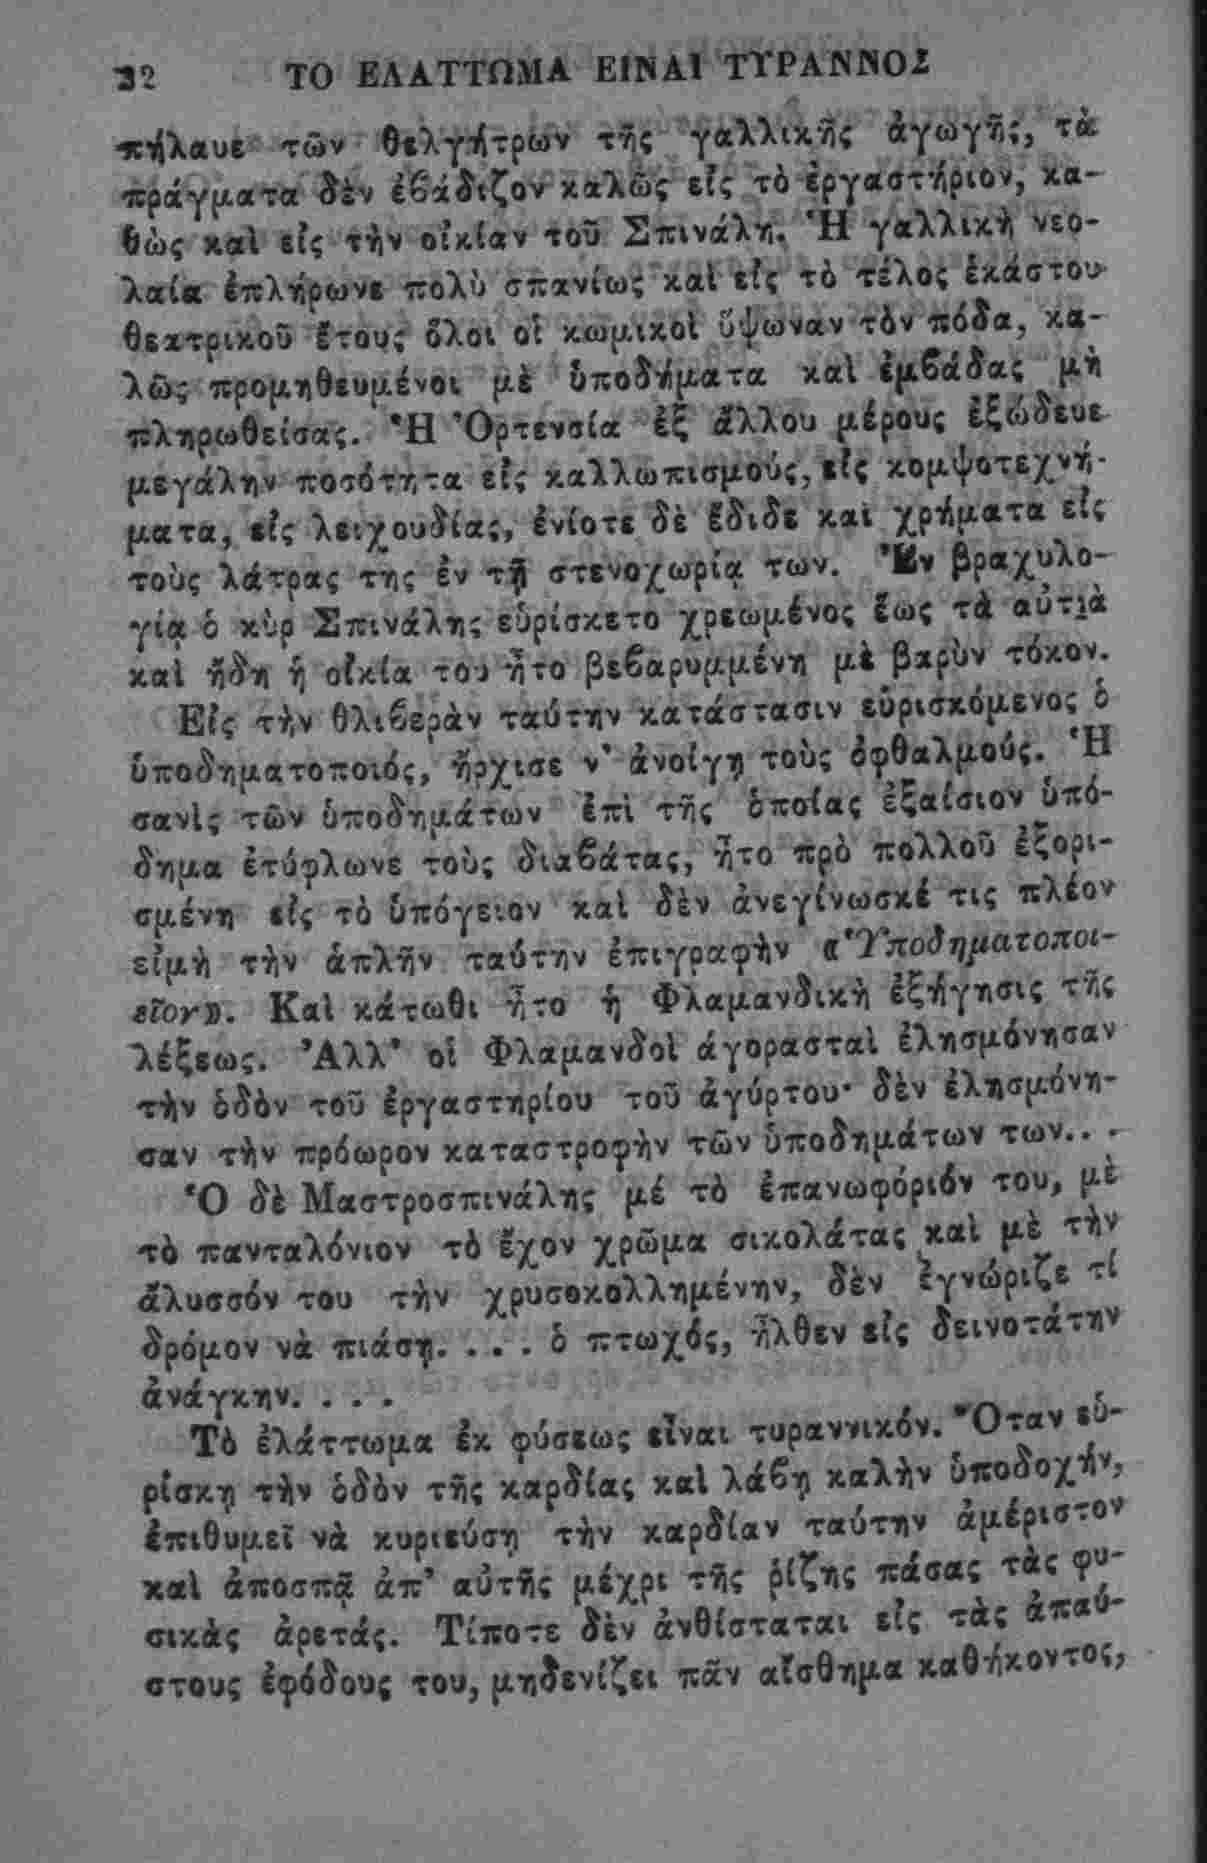 32 ΤΟ ΕΛΑΤΤΩΜΑ ΕΙΝΑΙ ΤΥΡΑΝΝΟΣ
πήλαυε τῶν θελγήτρων τῆς γαλλικῆς ἀγωγῆς, τὰ
πράγματα δὲν ἐβάδιζον καλῶς εἰς τὸ ἐργαστήριον, κα-
θὼς καὶ εἰς τὴν οἰκίαν τοῦ Σπινάλη. Ἡ γαλλικὴ νεο-
λαία ἐπλήρωνε πολὺ σπανίως καὶ εἰς τὸ τέλος ἑκάστου
θεατρικοῦ ἔτους ὅλοι οἱ κωμικοὶ ὕψωναν τὸν πόδα, κα-
λῶς προμηθευμένοι μὲ ὑποδήματα καὶ ἐμβάδας μὴ
πληρωθείσας. Ἡ Ὀρτενσία ἐξ ἄλλου μέρους ἐξώδευε
μεγάλην ποσότητα εἰς καλλωπισμούς, εἰς κομψοτεχνή-
ματα, εἰς λειχουδίας, ἐνίοτε δὲ ἔδιδε καὶ χρήματα εἰς
τοὺς λάτρας της ἐν τῇ στενοχωρίᾳ των. Ἐν βραχυλο-
γίᾳ ὁ κὺρ Σπινάλης εὑρίσκετο χρεωμένος ἕως τὰ αὐτιὰ
καὶ ἤδη ἡ οἰκία του ἦτο βεβαρυμμένη μὲ βαρὺν τόκον.
Εἰς τὴν θλιβερὰν ταύτην κατάστασιν εὑρισκόμενος ὁ
ὑποδηματοποιός, ἤρχισε ν' ἀνοίγῃ τοὺς ὀφθαλμούς. Ἡ
σανὶς τῶν ὑποδημάτων ἐπὶ τῆς ὁποίας ἐξαίσιον ὑπό-
δημα ἐτύφλωνε τοὺς διαβάτας, ἦτο πρὸ πολλοῦ ἐξορι-
σμένη εἰς τὸ ὑπόγειον καὶ δὲν ἀνεγίνωσκέ τις πλέον
εἰμὴ τὴν ἁπλῆν ταύτην ἐπιγραφὴν «Ὑποδηματοποι-
εῖον». Καὶ κάτωθι ἦτο ἡ Φλαμανδικὴ ἐξήγησις τῆς
λέξεως. Ἀλλ' οἱ Φλαμανδοὶ ἀγορασταὶ ἐλησμόνησαν
τὴν ὁδὸν τοῦ ἐργαστηρίου τοῦ ἀγύρτου· δὲν ἐλησμόνη-
σαν τὴν πρόωρον καταστροφὴν τῶν ὑποδημάτων των...
Ὁ δὲ Μαστροσπινάλης μέ τὸ ἐπανωφόριόν του, μὲ
τὸ πανταλόνιον τὸ ἔχον χρῶμα σικολάτας καὶ μὲ τὴν
ἄλυσσόν του τὴν χρυσοκολλημένην, δὲν ἐγνώριζε τί
δρόμον νὰ πιάσῃ.... ὁ πτωχός, ἦλθεν εἰς δεινοτάτην
ἀνάγκην....
Τὸ ἐλάττωμα ἐκ φύσεως εἶναι τυραννικόν. Ὅταν εὑ-
ρίσκῃ τὴν ὁδὸν τῆς καρδίας καὶ λάβῃ καλὴν ὑποδοχήν,
ἐπιθυμεῖ νὰ κυριεύσῃ τὴν καρδίαν ταύτην ἀμέριστον
καὶ ἀποσπᾷ ἀπ' αὐτῆς μέχρι τῆς ῥίζης πάσας τὰς φυ-
σικὰς ἀρετάς. Τίποτε δὲν ἀνθίσταται εἰς τὰς ἀπαύ-
στους ἐφόδους του, μηδενίζει πᾶν αἴσθημα καθήκοντος,